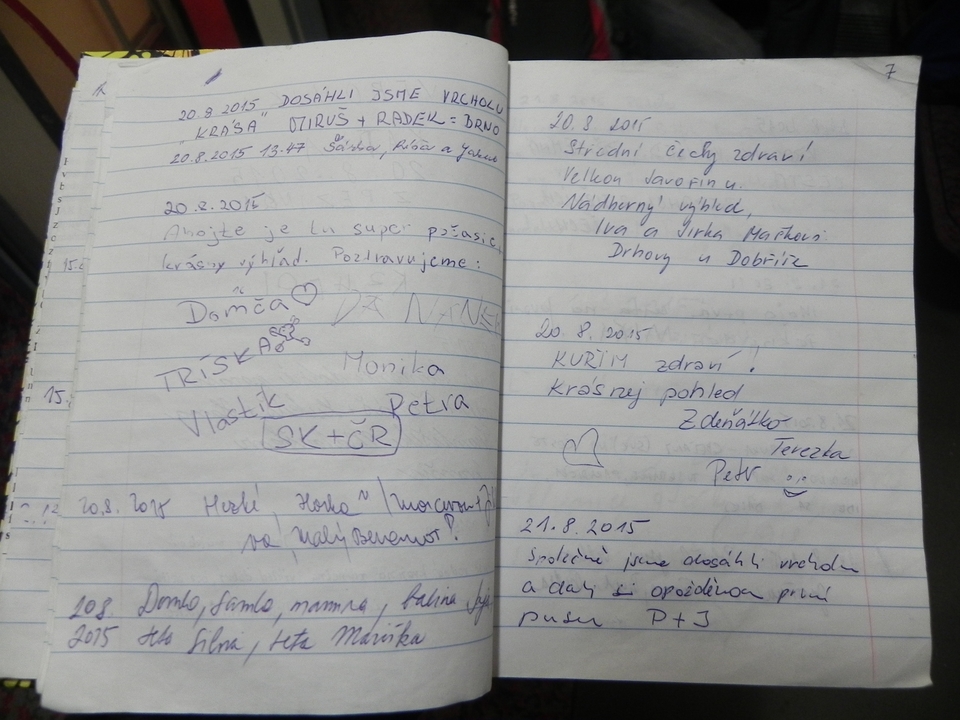 20.8 2015 DOSÁHLI JSME VRCHOLU
"KRÁSA" MIRUŠ + RADEK = BRNO
20.8.2015 13.47 Šárka, a Jakub
20.8.2015
Ahojte je tu super počasie,
krásny výhľad. Pozdravujeme:
Domča
TRÍSKA
Monika
Vlastík
Petra
SK + ČR
20.8. 2015 Hezké, Horko
Malý
20.8. Domčo, Samko, mamina,
2015 teta Silvia, teta Mariška
7
20.8 2015
Střední Čechy zdraví
Velkou Javořinu.
Nádherný výhled,
Iva a Jirka Maškovi
Drhovy u Dobříše
20.8.2015
KUŘIM zdraví!
Krásnej pohled
Zdeňátko
Terezka
Petr
21.8.2015
Společně jsme dosáhli vrcholu
a dali si opožděnou první
pusu P + J